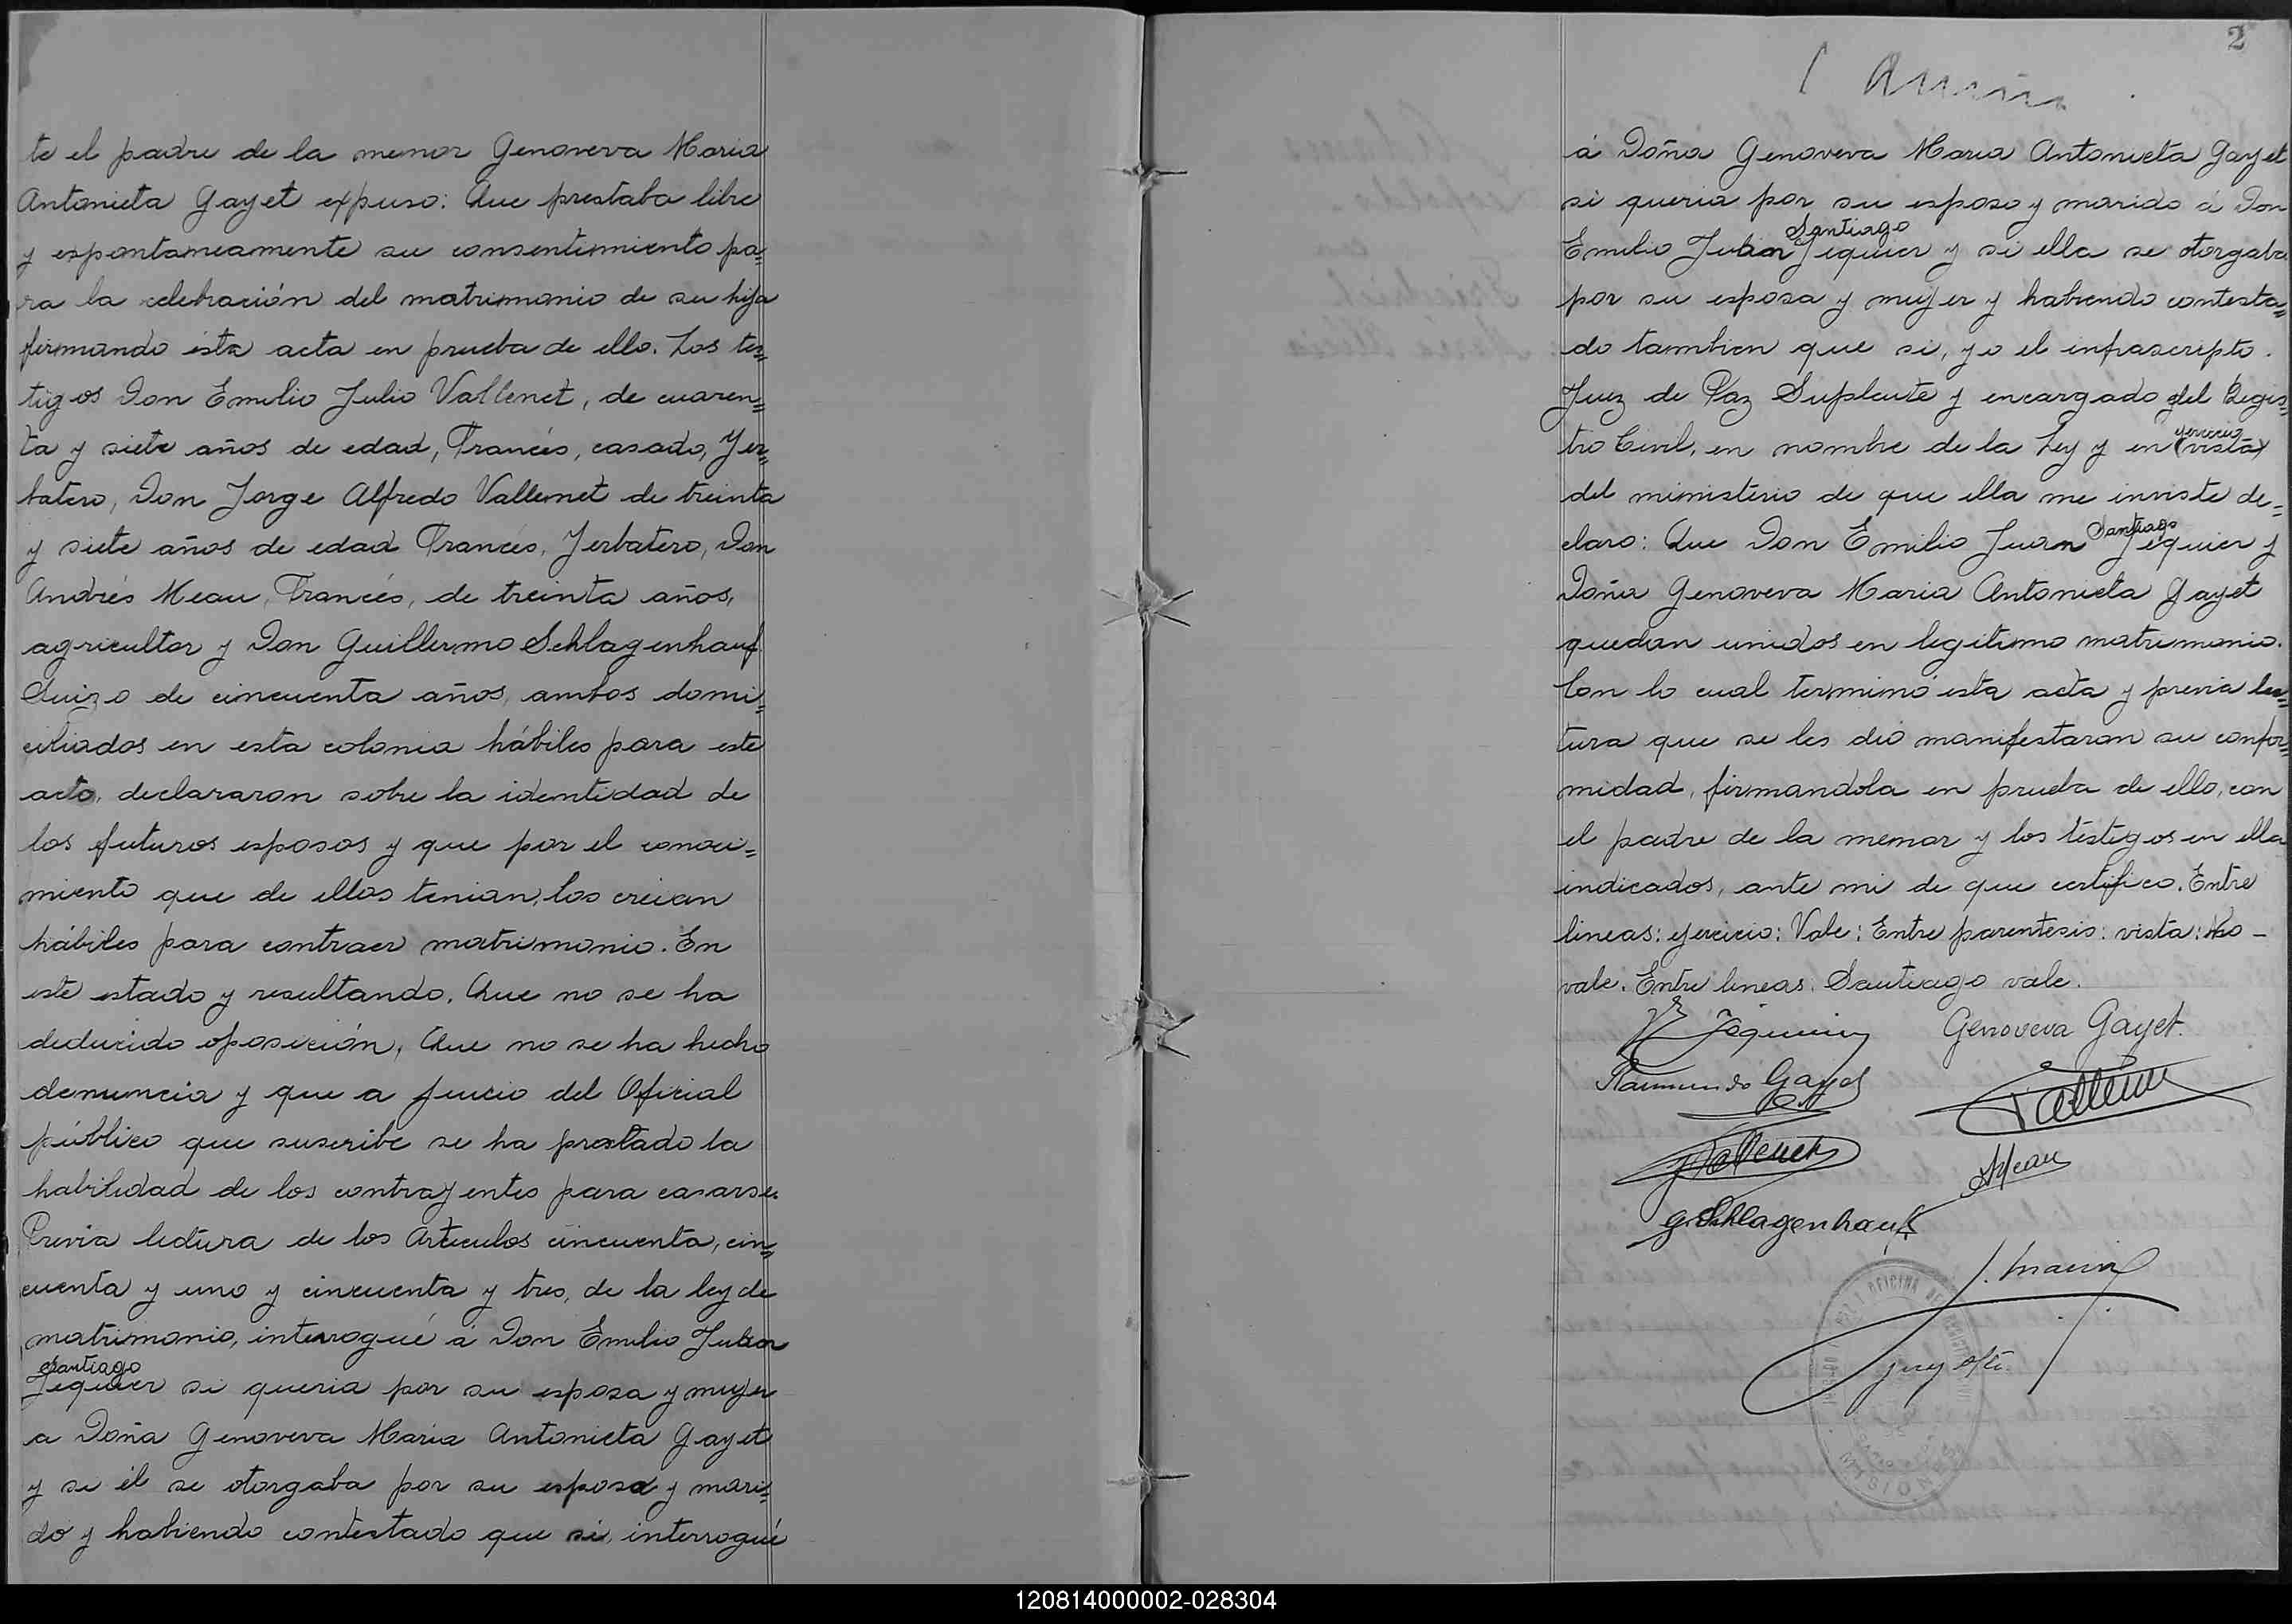 te el padre de la menor Genoveva Maria
Antonieta Gayet expuso: Que prestaba libre
y espontaneamente su consentimiento pa=
ra la celebración del matrimonio de su hija
firmando ésta acta en prueba de ello. Los tes=
tigos Don Emilio Julio Vallenet, de cuaren=
ta y siete años de edad, Francés, casado, Yer=
batero, Don Jorge Alfredo Vallenet de treinta
y siete años de edad Francés, Yerbatero, Don
Andrés Meau, Francés, de treinta años,
agricultor y Don Guillermo Schlagenhauf
Suizo de cincuenta años, ambos domi=
ciliados en esta colonia hábiles para este
acto, declararon sobre la identidad de
los futuros esposos y que por el conoci=
miento que de ellos tenian, los creian
hábiles para contraer matrimonio. En
este estado y resultando, Que no se ha
deducido oposición, Que no se ha hecho
denuncia y que a juicio del Oficial
público que suscribe se ha prestado la
habilidad de los contrayentes para casarse.
Previa lectura de los Articulos cincuenta, cin=
cuenta y uno y cincuenta y tres, de la ley de
matrimonio, interrogué á Don Emilio Juan
Santiago
Jequier si queria por su esposa y mujer
a Doña Genoveva Maria Antonieta Gayet
y si él se otorgaba por su esposo y mari=
do y habiendo contestado que si, interrogué
2
á Doña Genoveva Maria Antonieta Gayet
si queria por su esposo y marido á Don
Santiago
Emilio Juan Jequier y si ella se otorgaba
por su esposa y mujer y habiendo contesta=
do tambien que si, yo el infrascripto
Juez de Paz Suplente y encargado del Regis=
ejercicio
tro Civil, en nombre de la Ley y en (vista)
del ministerio de que ella me inviste de=
Santiago
claro: Que Don Emilio Juan Jequier y
Doña Genoveva Maria Antonieta Gayet
quedan unidos en legitimo matrimonio.
Con lo cual terminó esta acta y previa lec=
tura que se les dió manifestaron su confor=
midad, firmandola en prueba de ello, con
el padre de la menor y los testigos en ella
indicados, ante mi de que certifico. Entre
lineas: ejercicio: Vale: Entre parentesis: vista: No -
vale. Entre lineas: Santiago vale.
Jequier
Genoveva Gayet.
Raimundo Gayet
Vallenet
Vallenet
AMeau
G. Schlagenhauf
OFICINA DE
MISIONES
120814000002-028304